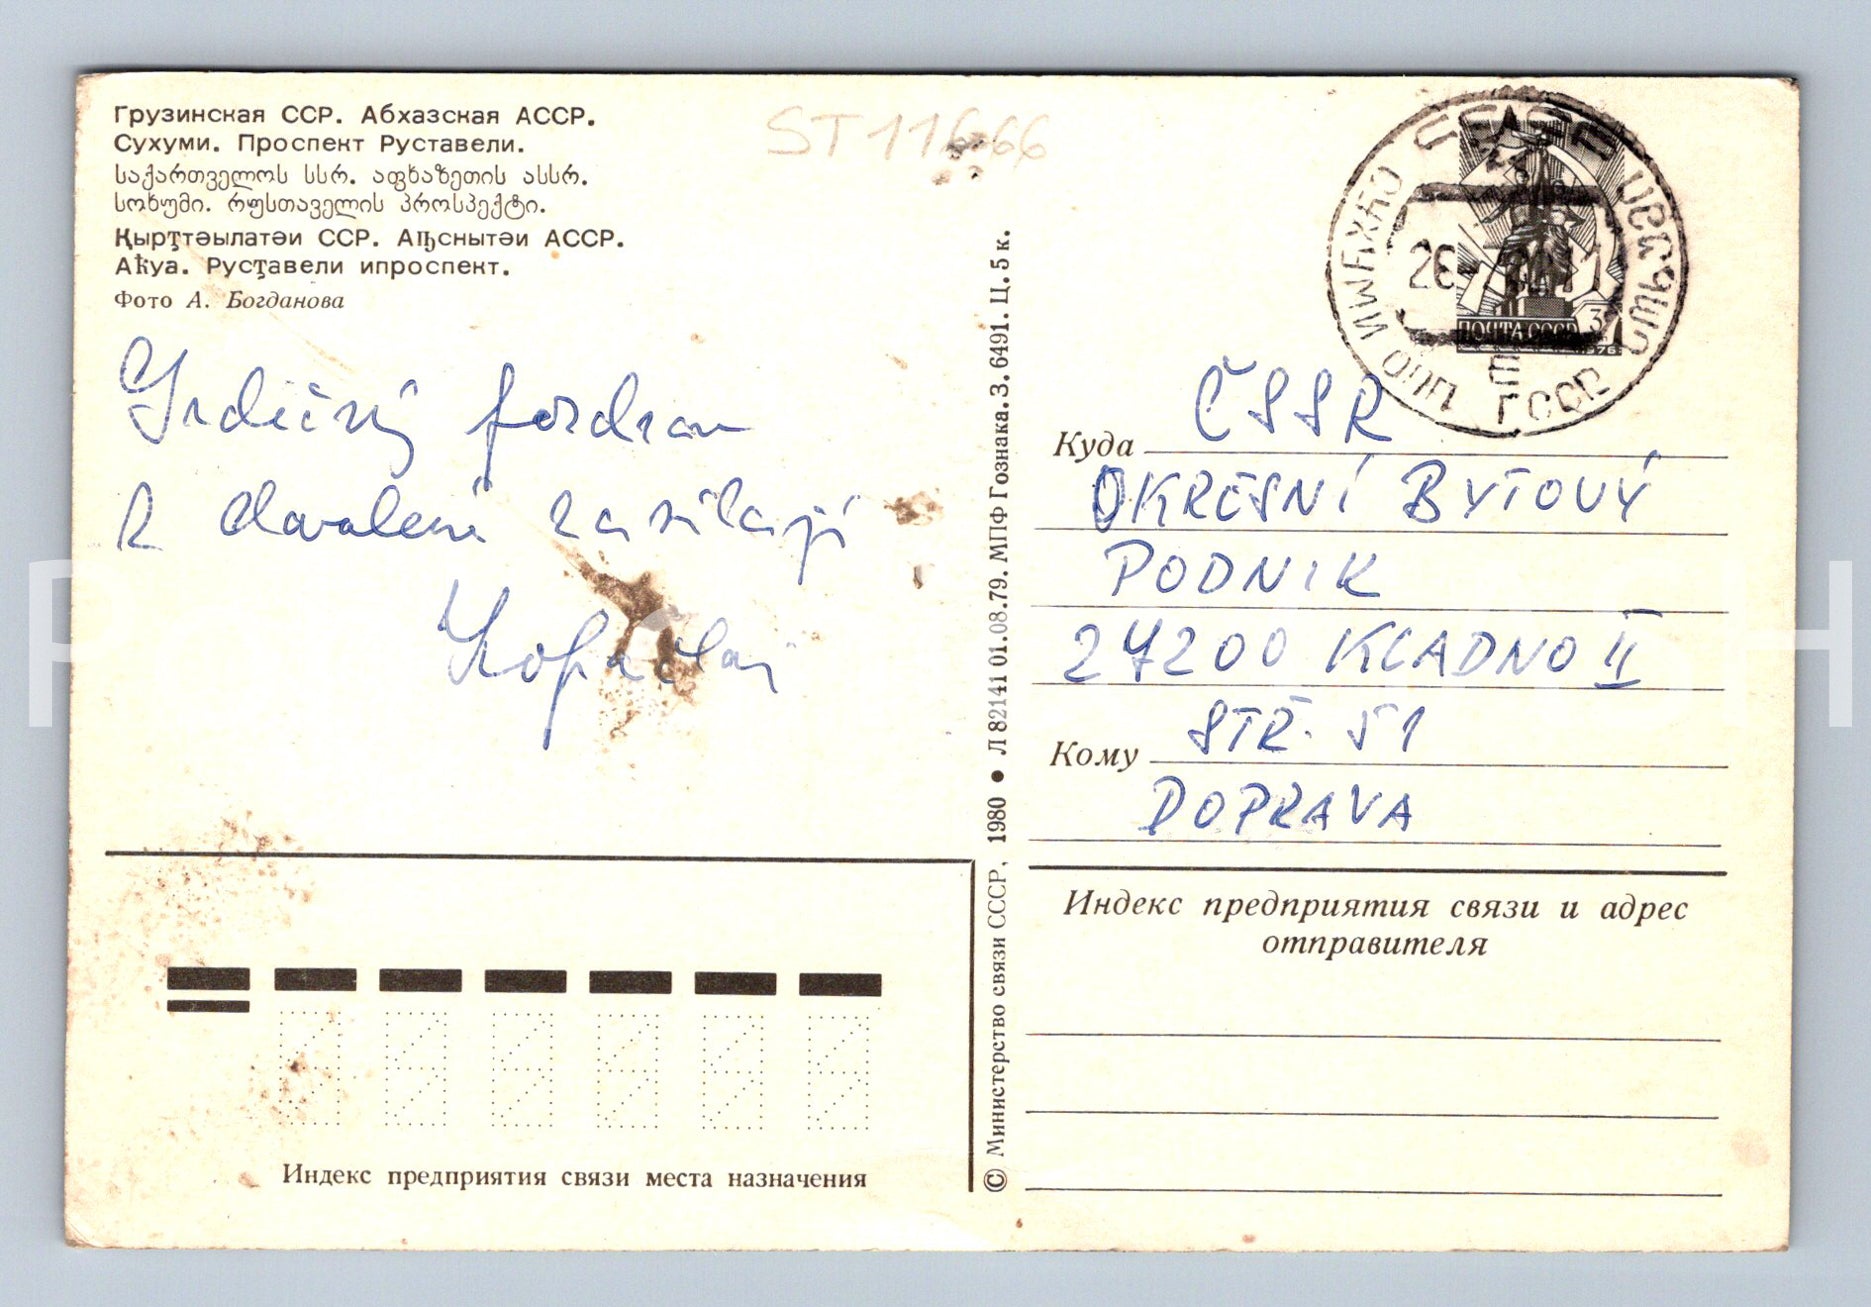 Грузинская ССР. Абхазская АССР.
Сухуми. Проспект Руставели.
საქართველოს სსრ. აფხაზეთის ასსრ.
სოხუმი. რუსთაველის პროსპექტი.
Қырҭтәылатәи ССР. Аԥснытәи АССР.
Аҟуа. Русҭавели ипроспект.
Фото А. Богданова
ST 11666
Srdečný pozdrav
z dovolené zasílají
© Министерство связи СССР, 1980 • Л 82141 01.08.79. МПФ Гознака. З. 6491. Ц. 5 к.
ПОЧТА СССР
1976
ČSSR
Куда
OKRESNÍ BYTOVÝ
PODNIK
27200 KLADNO II
STŘ. 51
Кому
DOPRAVA
Индекс предприятия связи и адрес
отправителя
Индекс предприятия связи места назначения